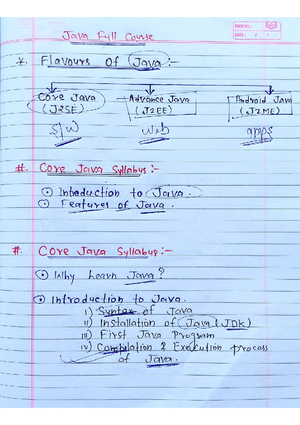 PAGE NO.:
DATE: / /
Java Full Course
* Flavours of Java :-
Core Java Advance Java Android Java
(J2SE) (J2EE) (J2ME)
S/W Web apps
#. Core Java Syllabus :-
⊙ Introduction to Java.
⊙ Features of Java.
#. Core Java Syllabus :-
⊙ Why Learn Java?
⊙ Introduction to Java.
i) Syntax of Java
ii) Installation of Java (JDK)
iii) First Java Program
iv) Compilation & Execution process
of Java.